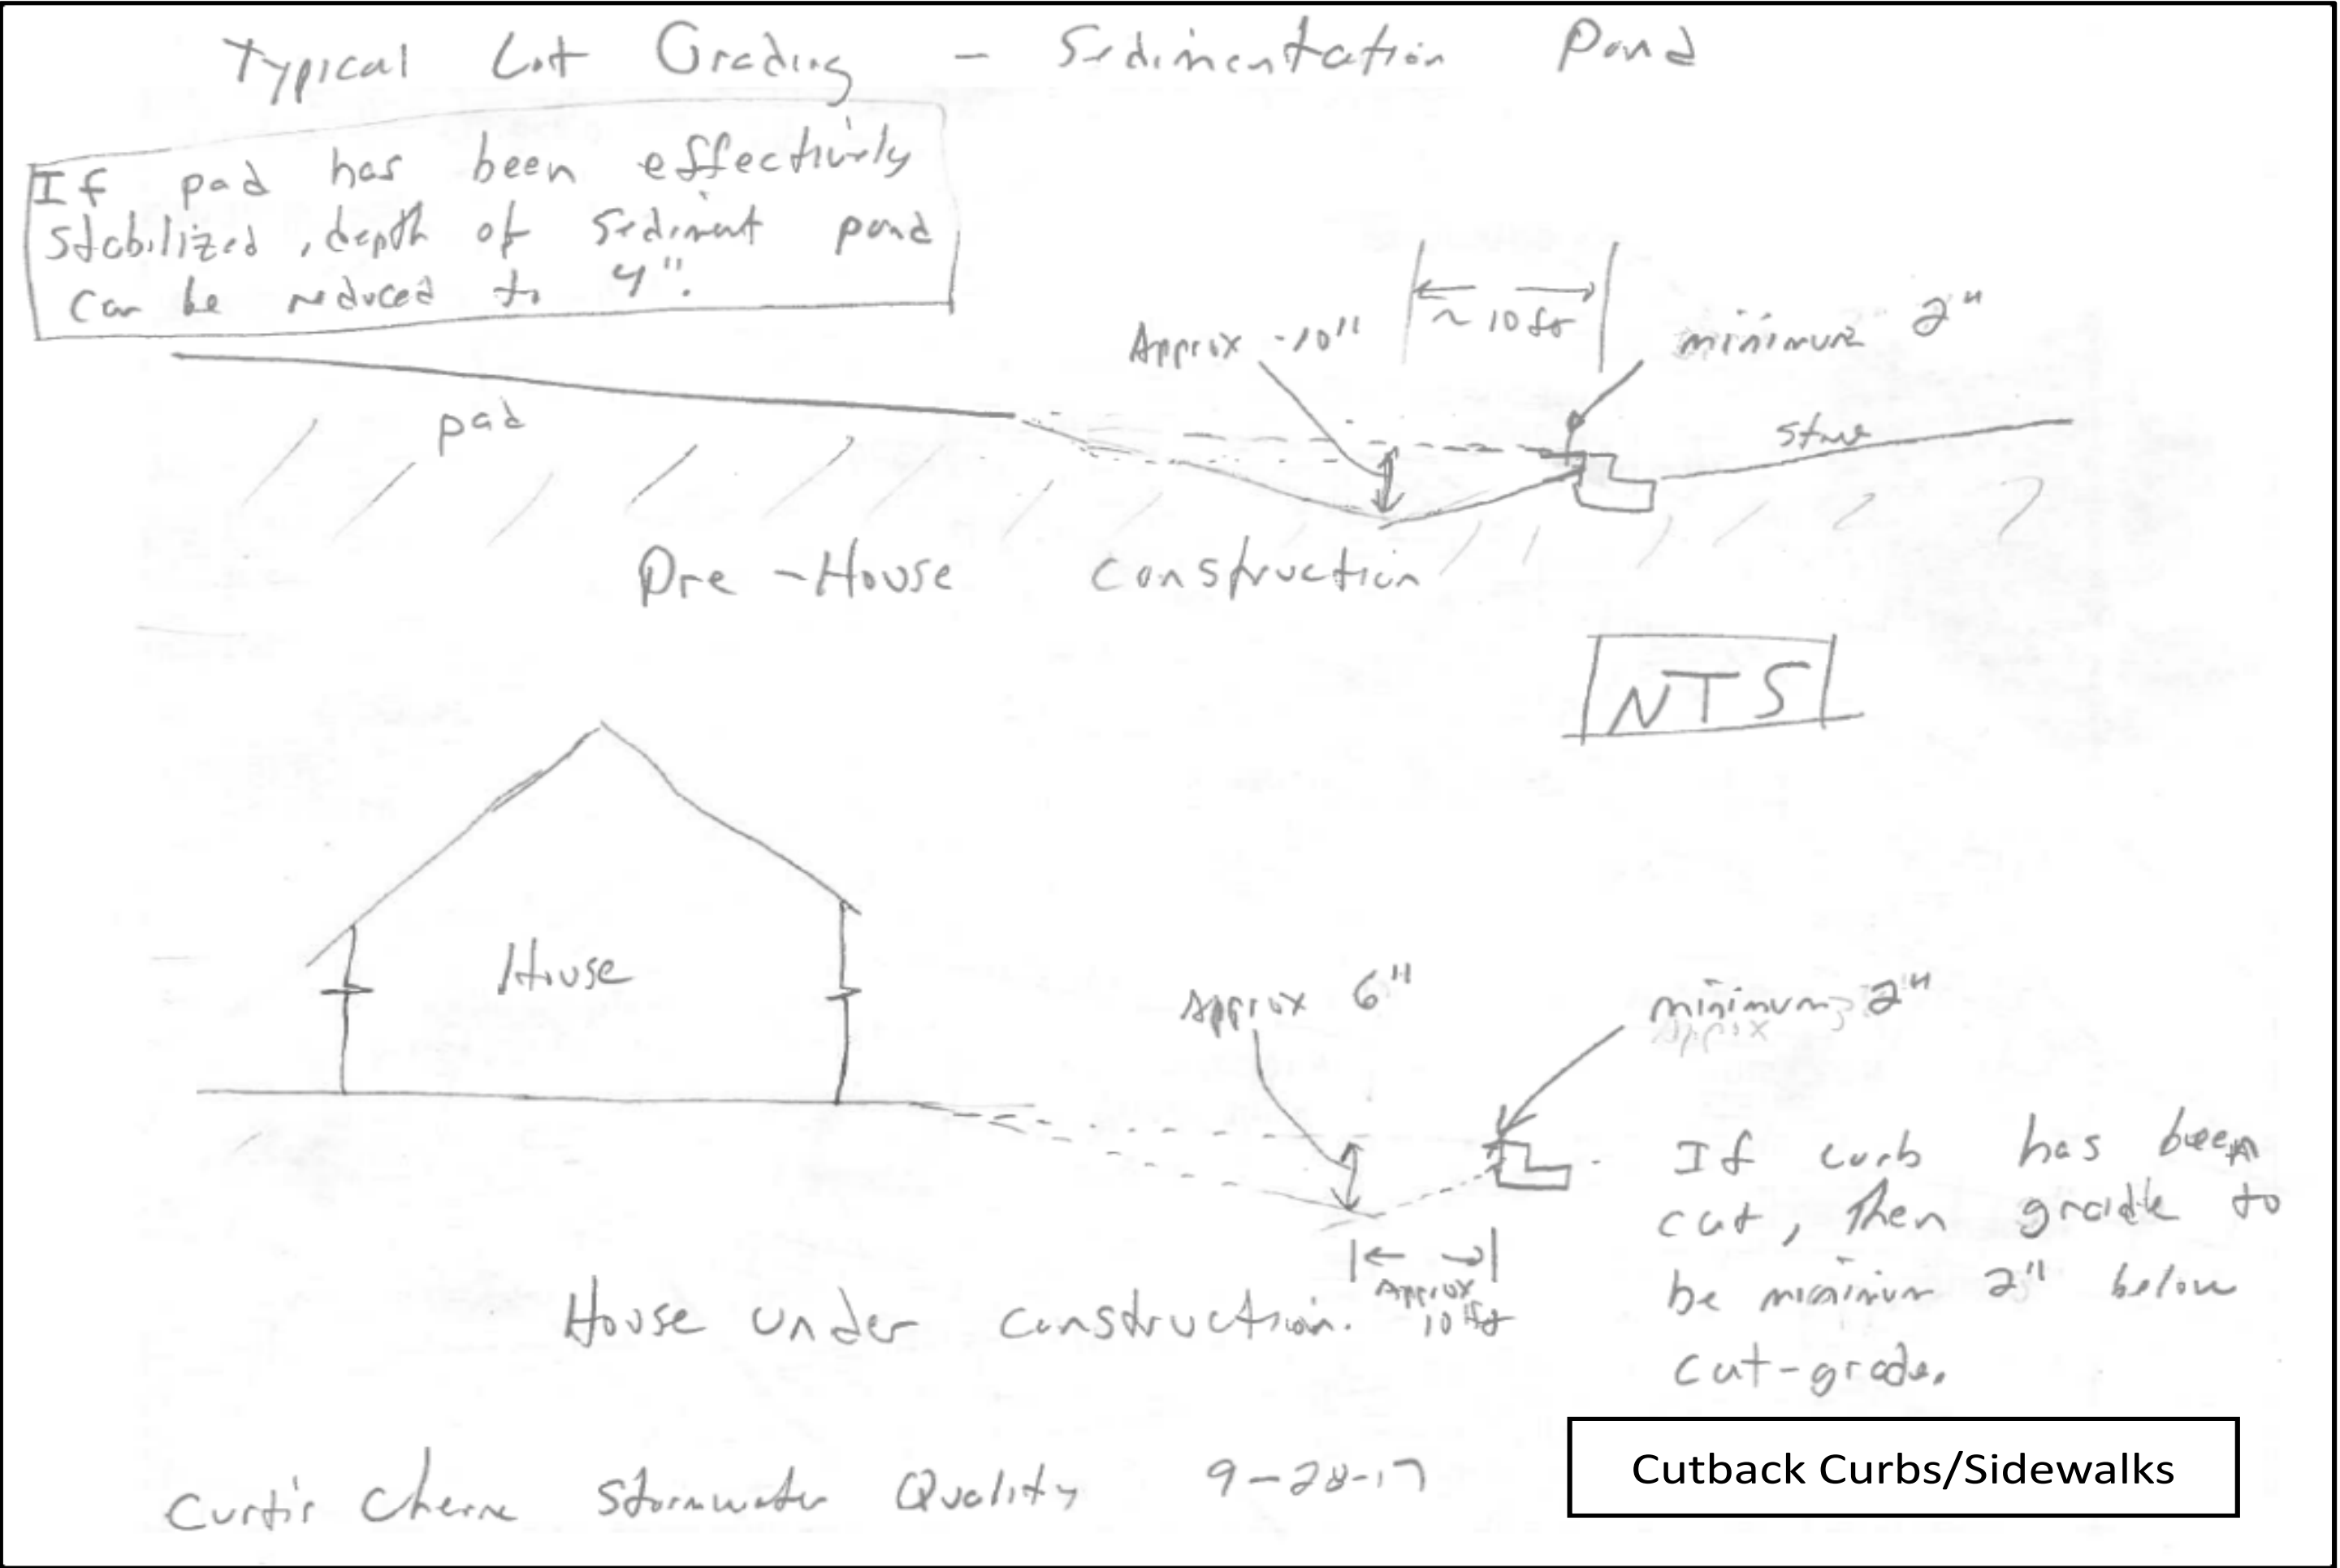 Typical Lot Grading - Sedimentation Pond
If pad has been effectively
stabilized, depth of sediment pond
can be reduced to 4".
Approx -10"
~ 10 ft
minimum 2"
pad
Pre-House Construction
NTS
House
Approx 6"
minimum 2"
Approx
10 ft
If curb has been
cut, then grade to
be minimum 2" below
cut-grade.
House under construction.
Curtis Cherne Stormwater Quality 9-28-17
Cutback Curbs/Sidewalks